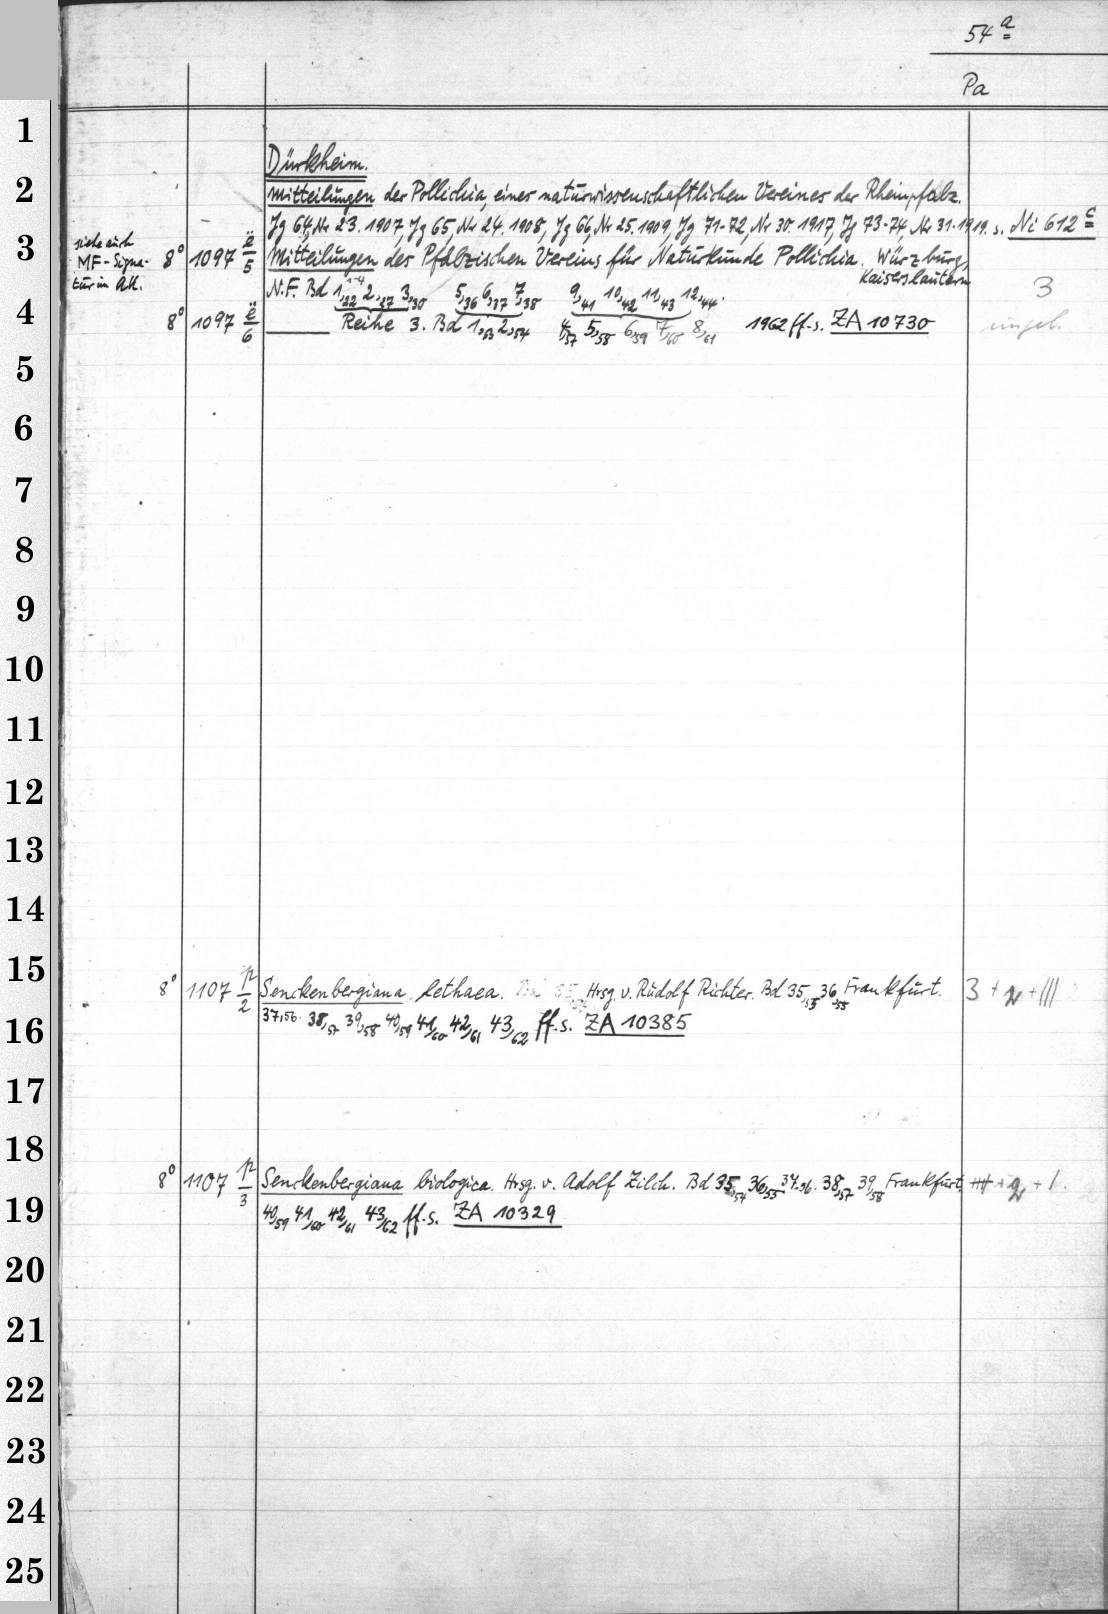 54 a
Pa
1
Dürkheim.
2 Mitteilungen der Pollichia, eines naturwissenschaftlichen Vereines der Rheinpfalz.
Jg 64, Nr 23. 1907, Jg 65, Nr 24. 1908, Jg 66, Nr 25. 1909, Jg 71-72, Nr 30. 1917, Jg 73-74, Nr 31. 1919. s. Ni 612 c
siehe auch MF-Signatur in AK.
3 8° 1097 ë/5 Mitteilungen des Pfälzischen Vereins für Naturkunde Pollichia. Würzburg, Kaiserslautern
N.F. Bd 1,22 2,27 3,30 5,36 6,37 7,38 9,41 10,42 11,43 12,44. 3
4 8° 1097 ë/6 ——— Reihe 3. Bd 1,53 2,54 4,57 5,58 6,59 7,60 8,61 1962 ff. s. ZA 10730 ungeb.
5
6
7
8
9
10
11
12
13
14
15 8° 1107 p/2 Senckenbergiana lethaea. Hrsg. v. Rudolf Richter. Bd 35,53 36,55 Frankfurt. 3 + 2 + |||
16 37,56. 38,57 39,58 40,59 41,60 42,61 43,62 ff. s. ZA 10385
17
18 8° 1107 p/3 Senckenbergiana biologica. Hrsg. v. Adolf Zilch. Bd 35,54 36,55 37,56. 38,57 39,58 Frankfurt, + 2 + 1.
19 40,59 41,60 42,61 43,62 ff. s. ZA 10329
20
21
22
23
24
25